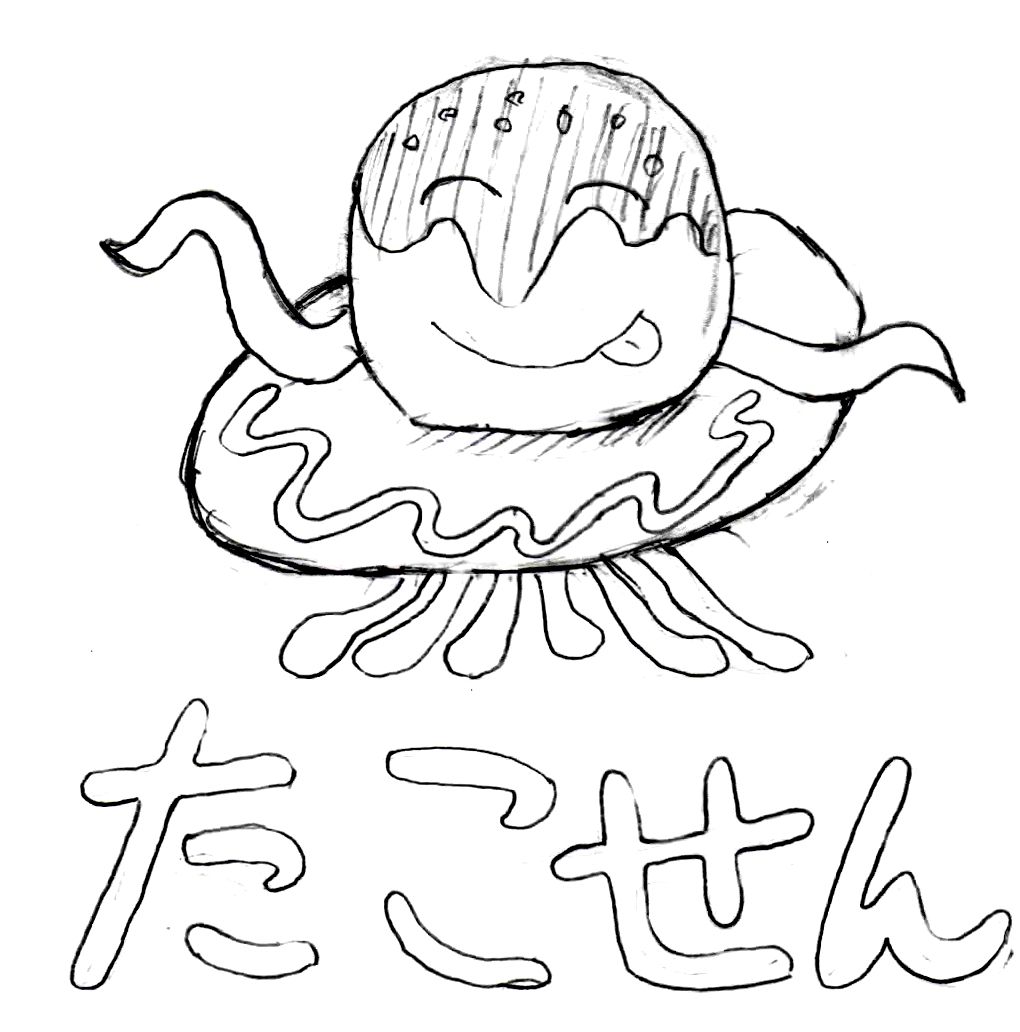 たこせん